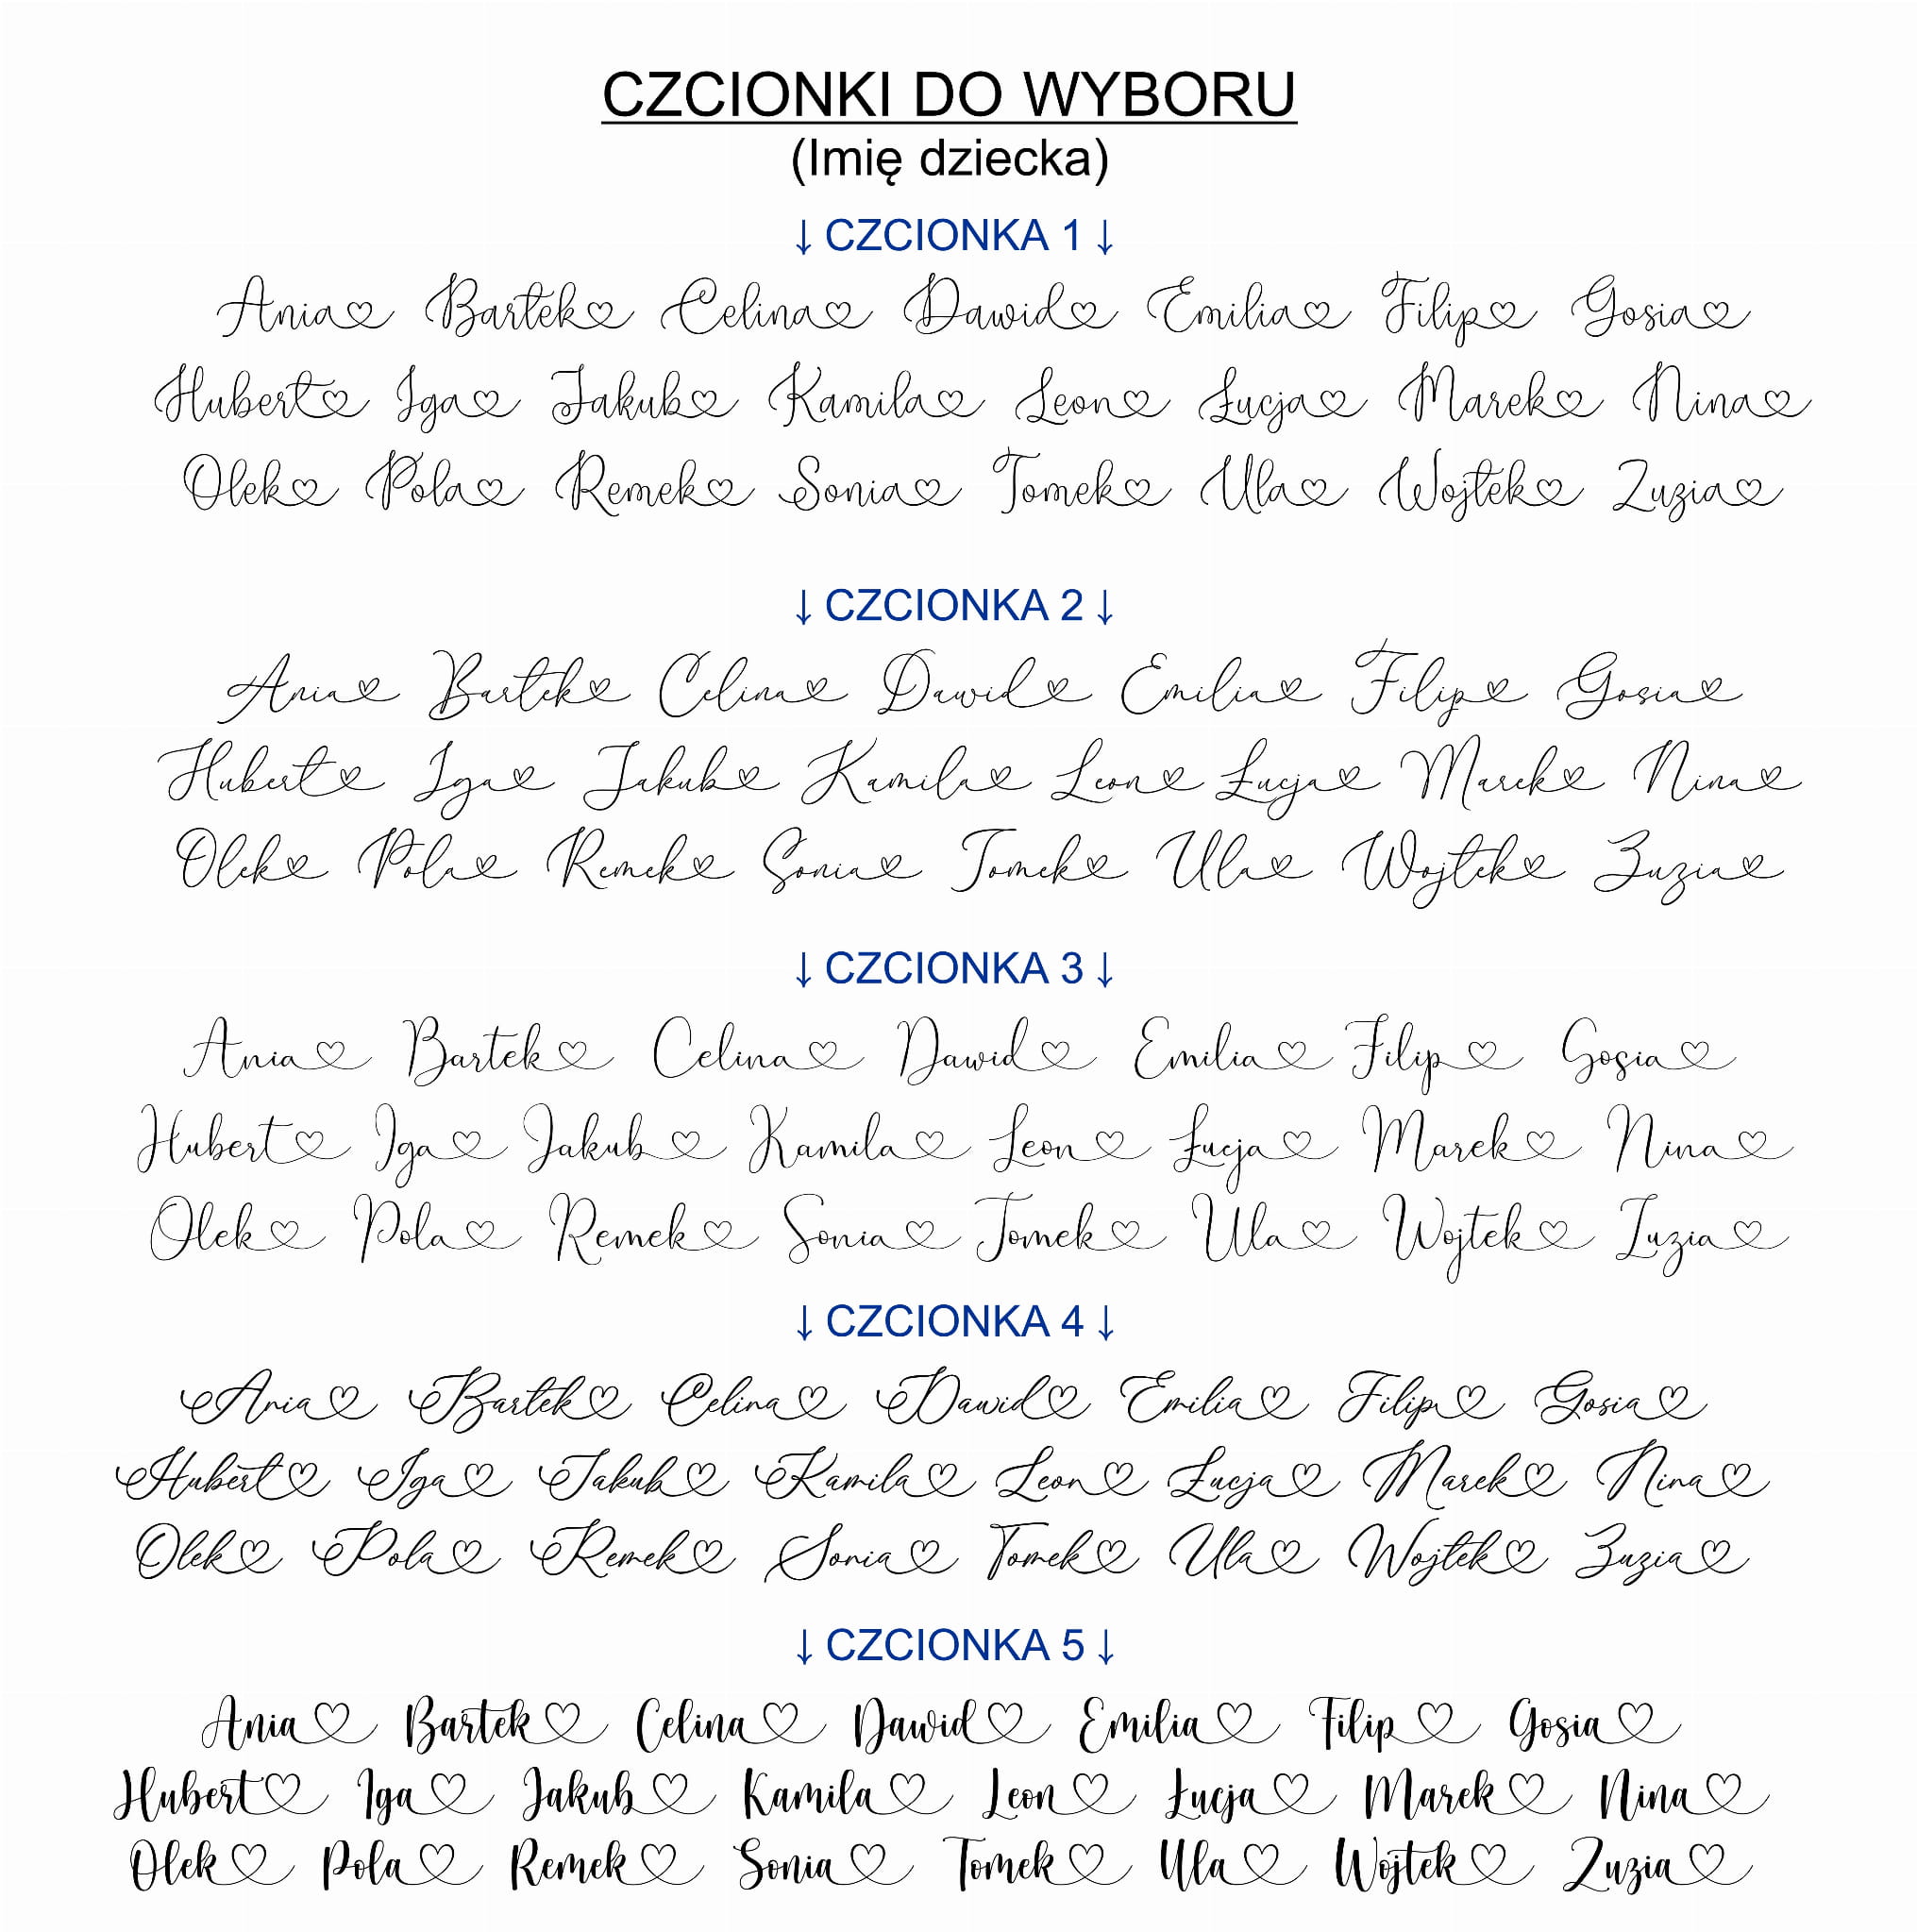 CZCIONKI DO WYBORU
(Imię dziecka)
↓ CZCIONKA 1 ↓
Ania♡ Bartek♡ Celina♡ Dawid♡ Emilia♡ Filip♡ Gosia♡
Hubert♡ Iga♡ Jakub♡ Kamila♡ Leon♡ Łucja♡ Marek♡ Nina♡
Olek♡ Pola♡ Remek♡ Sonia♡ Tomek♡ Ula♡ Wojtek♡ Zuzia♡
↓ CZCIONKA 2 ↓
Ania♡ Bartek♡ Celina♡ Dawid♡ Emilia♡ Filip♡ Gosia♡
Hubert♡ Iga♡ Jakub♡ Kamila♡ Leon♡ Łucja♡ Marek♡ Nina♡
Olek♡ Pola♡ Remek♡ Sonia♡ Tomek♡ Ula♡ Wojtek♡ Zuzia♡
↓ CZCIONKA 3 ↓
Ania♡ Bartek♡ Celina♡ Dawid♡ Emilia♡ Filip♡ Gosia♡
Hubert♡ Iga♡ Jakub♡ Kamila♡ Leon♡ Łucja♡ Marek♡ Nina♡
Olek♡ Pola♡ Remek♡ Sonia♡ Tomek♡ Ula♡ Wojtek♡ Zuzia♡
↓ CZCIONKA 4 ↓
Ania♡ Bartek♡ Celina♡ Dawid♡ Emilia♡ Filip♡ Gosia♡
Hubert♡ Iga♡ Jakub♡ Kamila♡ Leon♡ Łucja♡ Marek♡ Nina♡
Olek♡ Pola♡ Remek♡ Sonia♡ Tomek♡ Ula♡ Wojtek♡ Zuzia♡
↓ CZCIONKA 5 ↓
Ania♡ Bartek♡ Celina♡ Dawid♡ Emilia♡ Filip♡ Gosia♡
Hubert♡ Iga♡ Jakub♡ Kamila♡ Leon♡ Łucja♡ Marek♡ Nina♡
Olek♡ Pola♡ Remek♡ Sonia♡ Tomek♡ Ula♡ Wojtek♡ Zuzia♡